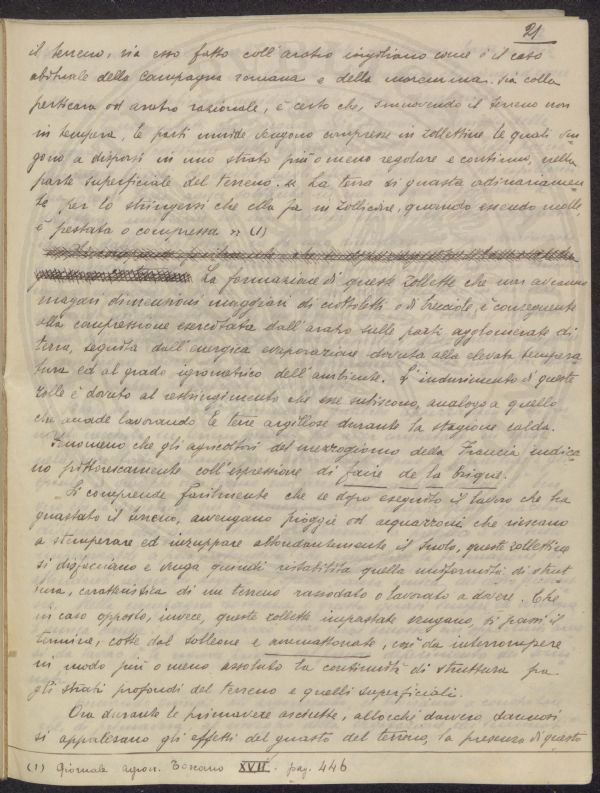 21
il terreno, sia esso fatto coll'aratro virgiliano come è il caso
abituale della campagna romana e della maremma, sia colla
perticara od aratro razionale, è certo che, smuovendo il terreno non
in tempera, le parti umide vengono compresse in zollettine le quali ven
gono a disporsi in uno strato più o meno regolare e continuo, nella
parte superficiale del terreno. « La terra si guasta ordinariamen
te per lo stringersi che ella fa in zollicine, quando essendo molle
è pestata o compressa » (1)
La formazione di queste zollette che non avranno
magari dimensioni maggiori di ciottoletti o di brecciole, è conseguente
alla compressione esercitata dall'aratro sulle parti agglomerate di
terra, seguita dall'energica evaporazione dovuta alla elevata tempera
tura ed al grado igrometrico dell'ambiente. L'indurimento di queste
zolle è dovuto al restringimento che esse subiscono, analogo a quello
che accade lavorando le terre argillose durante la stagione calda.
Fenomeno che gli agricoltori del mezzogiorno della Francia indica
no pittorescamente coll'espressione di faire de la brique.
Si comprende facilmente che se dopo eseguito il lavoro che ha
guastato il terreno, avvengano pioggie od acquazzoni che riescano
a stemperare ed inzuppare abbondantemente il suolo, queste zollettine
si disfacciano e venga quindi ristabilita quella uniformità di strut
tura, caratteristica di un terreno rassodato o lavorato a dovere. Che
in caso opposto, invece, queste zollette impastate vengano, si passi il
termine, cotte dal solleone e ammattonate, così da interrompere
in modo più o meno assoluto la continuità di struttura fra
gli strati profondi del terreno e quelli superficiali.
Ora durante le primavere asciutte, allorchè davvero, dannosi
si appalesano gli effetti del guasto del terreno, la presenza di queste
(1) Giornale agron. Toscano XVII. pag. 446